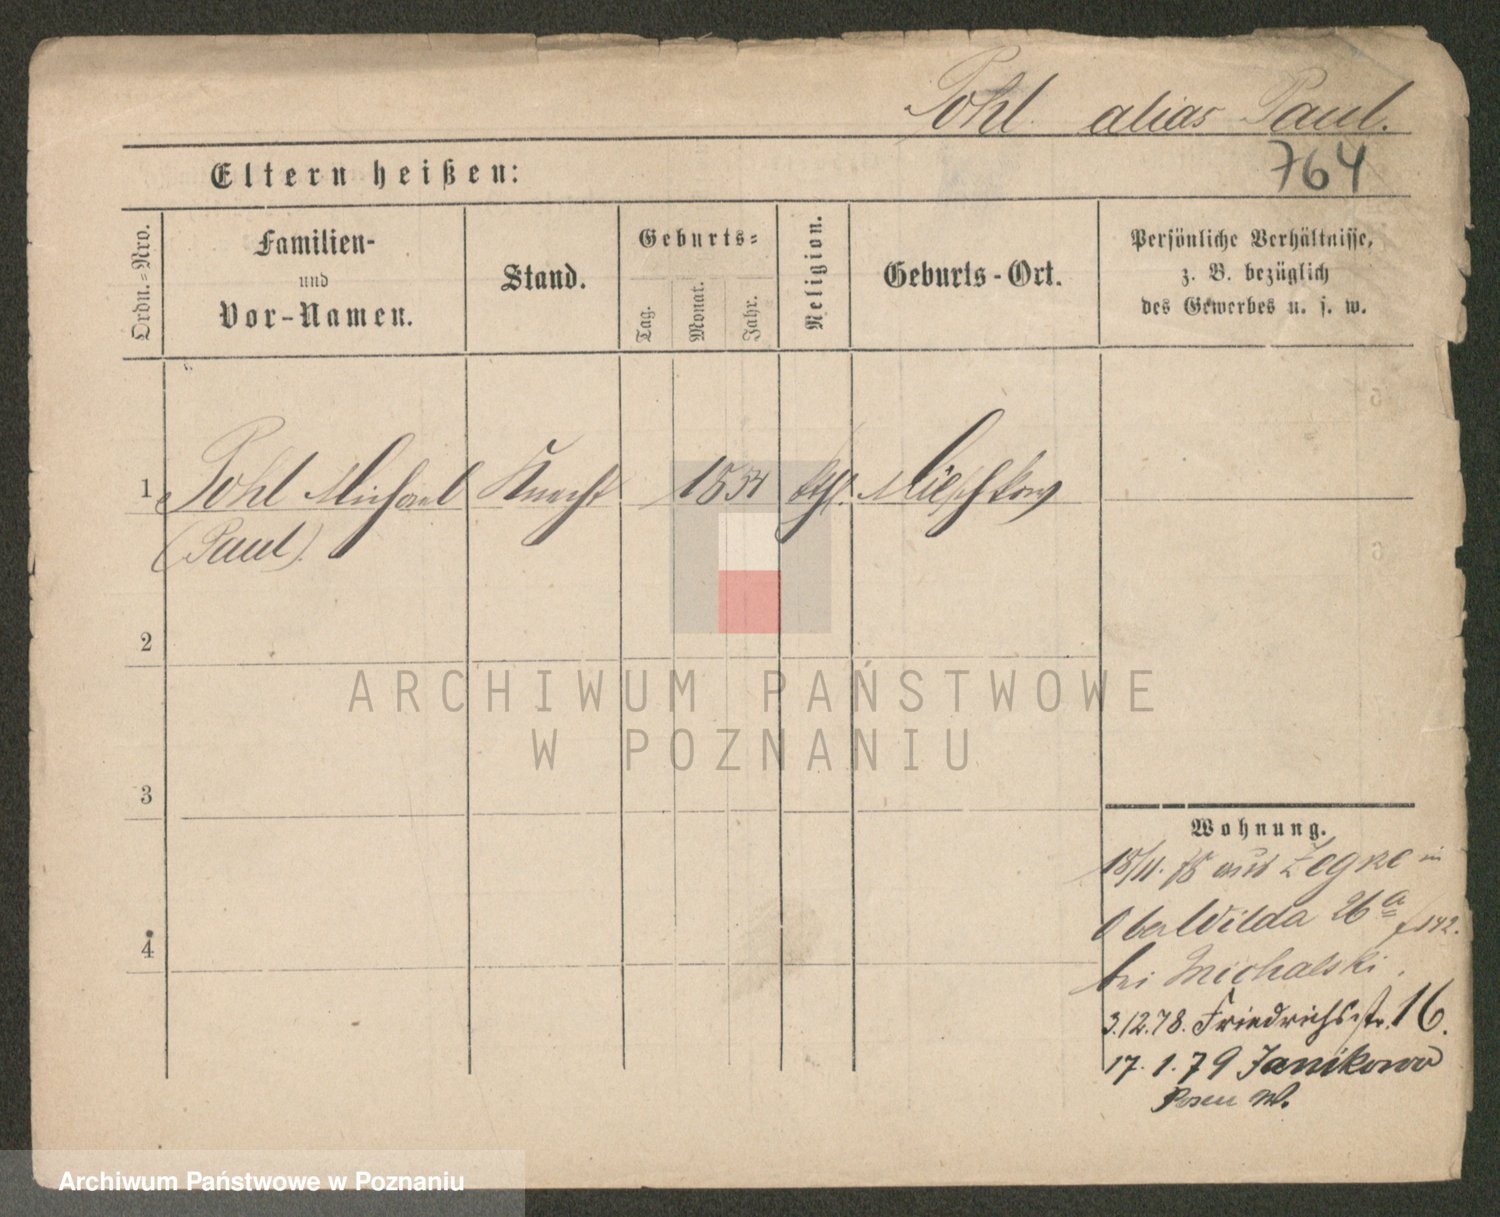 Pohl alias Paul.
Eltern heißen:
764
Ordn.=Nro.
Familien-
und
Vor-Namen.
Stand.
Geburts=
Tag.
Monat.
Jahr.
Religion.
Geburts-Ort.
Persönliche Verhältnisse,
z. B. bezüglich
des Gewerbes u. s. w.
1 Pohl Michael Knecht 1854 kth. Mieschkow
(Paul)
2
3
4
ARCHIWUM PAŃSTWOWE
W POZNANIU
Wohnung.
18/11. 78 aus Zegrze in
Ober Wilda 26 a
bei Michalski.
3.12.78. Friedrichsstr. 16.
17.1.79 Janikowo
Posen
Archiwum Państwowe w Poznaniu